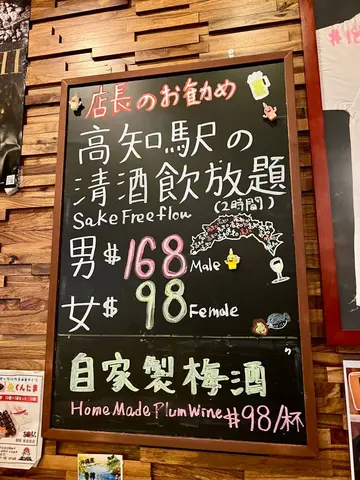 店長のお勧め
高知駅の
清酒飲放題
Sake Free flow
(2時間)
男 $168 Male
女 $98 Female
自家製梅酒
Home Made Plum Wine $98/杯